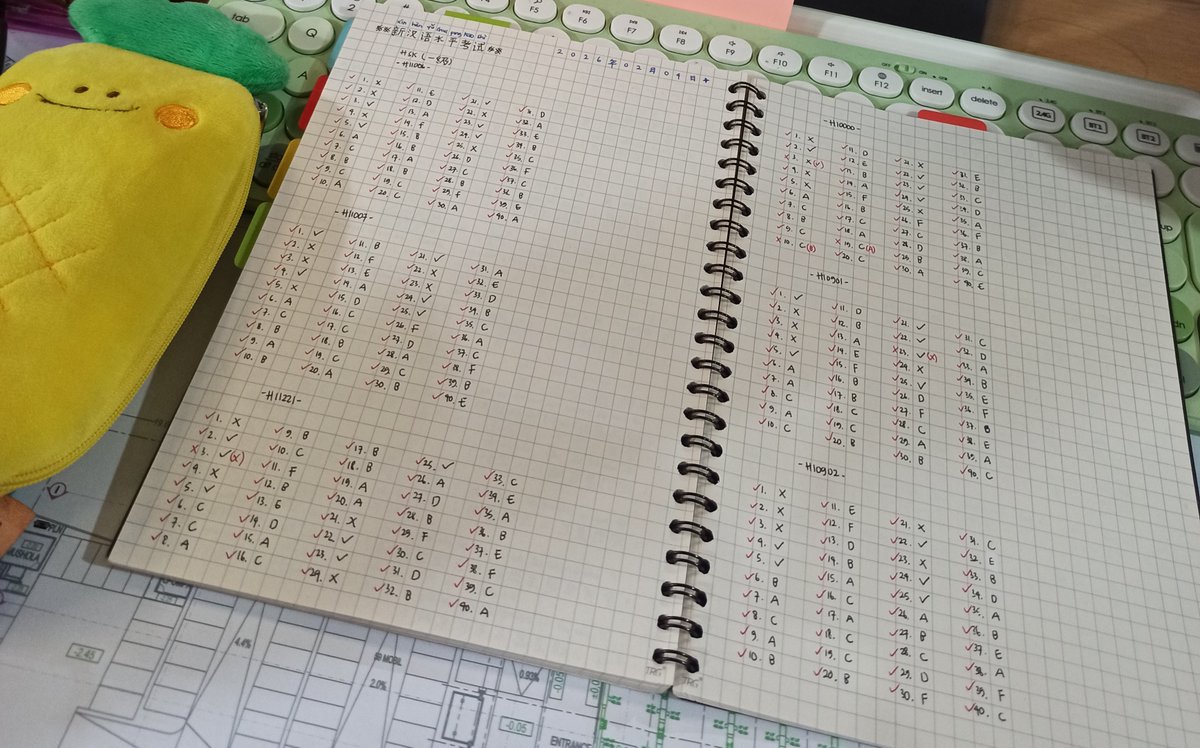 新汉语水平考试
HSK (一级)
2026年02月09日
-H11006-
1. X
2. X
3. ✓
4. X
5. ✓
6. A
7. C
8. B
9. C
10. A
11. E
12. D
13. A
14. F
15. B
16. B
17. A
18. B
19. C
20. C
21. ✓
22. X
23. ✓
24. ✓
25. X
26. D
27. C
28. B
29. F
30. A
31. D
32. A
33. E
34. B
35. C
36. F
37. C
38. B
39. E
40. A
-H11007-
1. ✓
2. X
3. X
4. ✓
5. X
6. A
7. C
8. B
9. A
10. B
11. B
12. F
13. E
14. A
15. D
16. C
17. C
18. B
19. C
20. A
21. ✓
22. X
23. X
24. ✓
25. ✓
26. F
27. D
28. A
29. C
30. B
31. A
32. E
33. D
34. B
35. C
36. A
37. C
38. F
39. B
40. E
-H11221-
1. X
2. ✓
3. ✓(X)
4. X
5. ✓
6. C
7. C
8. A
9. B
10. C
11. F
12. B
13. E
14. D
15. A
16. C
17. B
18. B
19. A
20. A
21. X
22. ✓
23. ✓
24. X
25. ✓
26. A
27. D
28. B
29. F
30. C
31. D
32. B
33. C
34. E
35. A
36. B
37. E
38. F
39. C
40. A
-H10000-
1. X
2. ✓
3. X(✓)
4. X
5. X
6. A
7. C
8. B
9. C
10. C(B)
11. D
12. E
13. B
14. A
15. F
16. B
17. C
18. A
19. C(A)
20. C
21. X
22. ✓
23. ✓
24. ✓
25. X
26. F
27. C
28. D
29. B
30. A
31. E
32. B
33. C
34. D
35. A
36. F
37. B
38. A
39. C
40. E
-H10901-
1. ✓
2. X
3. X
4. X
5. ✓
6. A
7. A
8. C
9. A
10. C
11. D
12. B
13. A
14. E
15. F
16. B
17. B
18. C
19. C
20. B
21. ✓
22. ✓
23. ✓(X)
24. X
25. ✓
26. D
27. F
28. C
29. A
30. B
31. C
32. D
33. A
34. B
35. E
36. F
37. B
38. E
39. A
40. C
-H10902-
1. X
2. X
3. X
4. ✓
5. ✓
6. B
7. A
8. C
9. A
10. B
11. E
12. F
13. D
14. B
15. A
16. C
17. A
18. C
19. C
20. B
21. X
22. ✓
23. X
24. ✓
25. ✓
26. A
27. B
28. C
29. D
30. F
31. C
32. E
33. B
34. D
35. A
36. B
37. E
38. A
39. F
40. C
TRG
TRG
tab
Q
A
2
F5
F6
F7
F8
F9
F10
F11
F12
insert
delete
2.4G
BT1
BT2
MUSHOLA
-2.45
4.4%
MOBIL
2.0%
0.93%
-0.05
-0.05
ENTRANCE